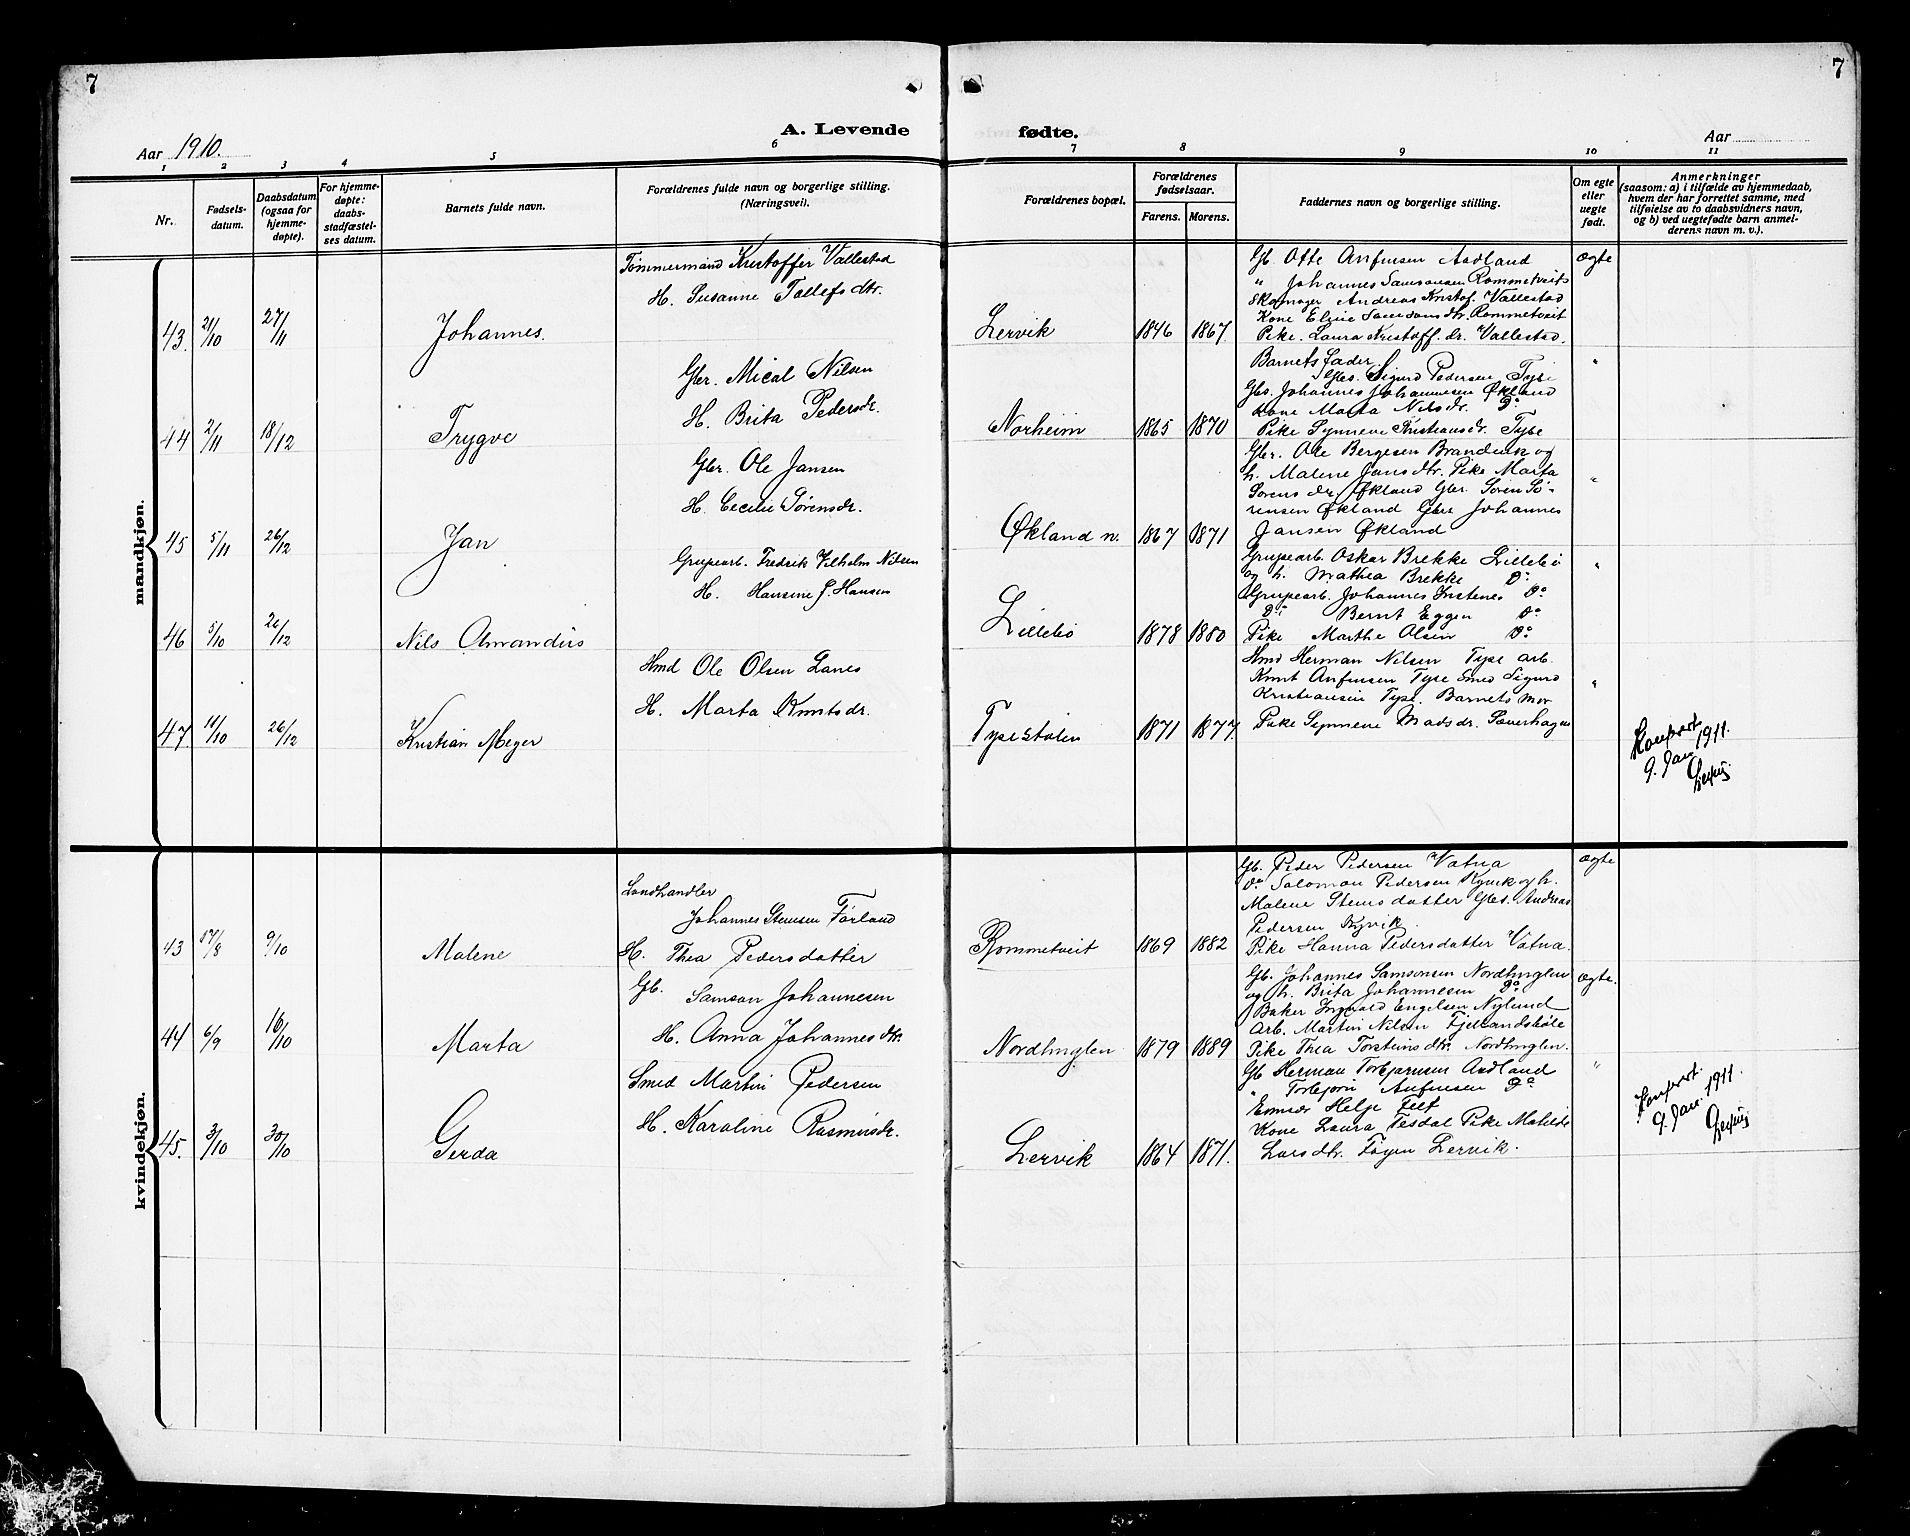 7
7
A. Levende fødte.
Aar 1910.
Aar
1 2 3 4 5 6 7 8 9 10 11
Nr.
Fødsels-
datum.
Daabsdatum
(ogsaa for
hjemme-
døpte).
For hjemme-
døpte:
daabs-
stadfæstel-
ses datum.
Barnets fulde navn.
Forældrenes fulde navn og borgerlige stilling.
(Næringsvei).
Forældrenes bopæl.
Forældrenes
fødselsaar.
Farens. Morens.
Faddernes navn og borgerlige stilling.
Om egte
eller
uegte
født.
Anmerkninger
(saasom: a) i tilfælde av hjemmedaab,
hvem der har forrettet samme, med
tilføielse av to daabsvidners navn,
og b) ved uegtefødte barn anmel-
derens navn m. v.).
mandkjøn.
43. 21/10 27/11 Johannes.
Tømmermand Kristoffer Vallestad
H. Susanne Tollefsdtr.
Lervik 1846 1867
Gb. Otte Anfinsen Aadland
" Johannes Samsonsen Rommetveit
Skomager Andreas Kristof. Vallestad
Kone Eline Samsonsdtr. Rommetveit
Pike. Laura Kristoff. dr. Vallestad.
ægte
44 2/11 18/12 Trygve
Gbr. Mical Nilsen
H. Brita Pedersdr.
Norheim 1865 1870
Barnets fader
Gbs. Sigurd Pedersen Tyse
Gbs. Johannes Johannesen Økland
Kone Marta Nilsdr. Do
Pike Synneve Kristiansdr. Tyse
"
45 5/11 26/12 Jan
Gbr. Ole Jansen
H. Cecilie Sørensdr.
Økland n. 1867 1871
Gbr. Ole Bergesen Brandvik og
h. Malene Jansdtr. Pike Marta
Sørensdr. Økland Gbr. Søren Sø-
rensen Økland Gbs. Johannes
Jansen Økland
"
46 5/10 26/12 Nils Amandus
Grupearb. Fredrik Vilhelm Nilsen
H. Hansine J. Hansen
Lillebø 1878 1880
Grupearb. Oskar Brekke Lillebø
og h. Mathea Brekke Do
Grupearb. Johannes Instenes Do
Do Bernt Eggen Do
Pike Marthe Olsen Do
"
47 11/10 26/12 Kristian Meyer
Hmd Ole Olsen Lanes
H. Marta Knutsdr.
Tysestølen 1871 1877.
Hmd Herman Nilsen Tyse arb.
Knut Anfinsen Tyse Smed Sigurd
Kristiansen Tyse. Barnets Mor
Pike Synneve Madsdr. Sæverhagen
"
Konfert.
9. Jan. 1911.
kvindekjøn.
43 17/8 9/10 Malene
Landhandler
Johannes Stensen Førland
H. Thea Pedersdatter
Rommetveit 1869 1882
Gb. Peder Pedersen Vatna
Do Salomon Pedersen Kyvik og h.
Malene Stensdatter Gbs. Andreas
Pedersen Kyvik
Pike Hanna Pedersdatter Vatna.
ægte
44 6/9 16/10 Marta
Gb. Samson Johannesen
H. Anna Johannesdtr.
Nordhuglen 1879 1889
Gb. Johannes Samsonsen Nordhuglen
og h. Brita Johannesen Do
Baker Ingvald Engelsen Nylund
Arb. Martin Nilsen Fjellandsbøle
Pike Thea Torsteinsdtr. Nordhuglen.
ægte.
45. 3/10 30/10 Gerda
Smed Martin Pedersen
H. Karoline Rasmusdr.
Lervik 1864 1871.
Gb Herman Torbjørnsen Aadland
" Torbjørn Anfinsen Do
Helje Felt
Kone Laura Tesdal Pike Matilde
Larsdtr. Føyen Lervik.
"
Konfert.
9. Jan. 1911.